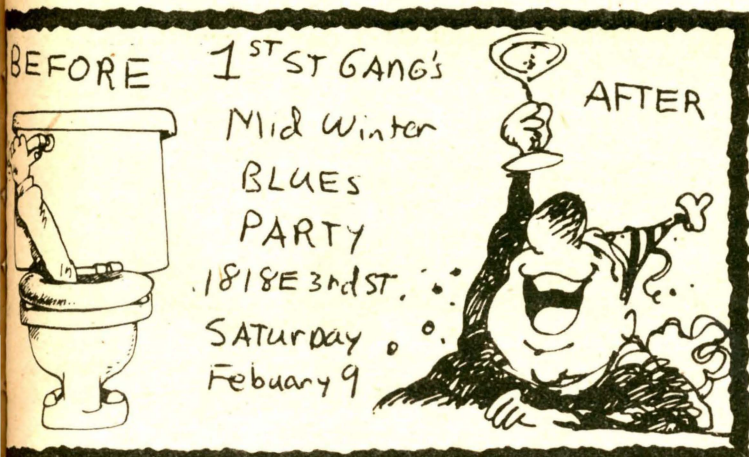 BEFORE
1ST ST GANG's
Mid Winter
BLUES
PARTY
1818E 3rd ST.
SATurDAY
Febuary 9
AFTER